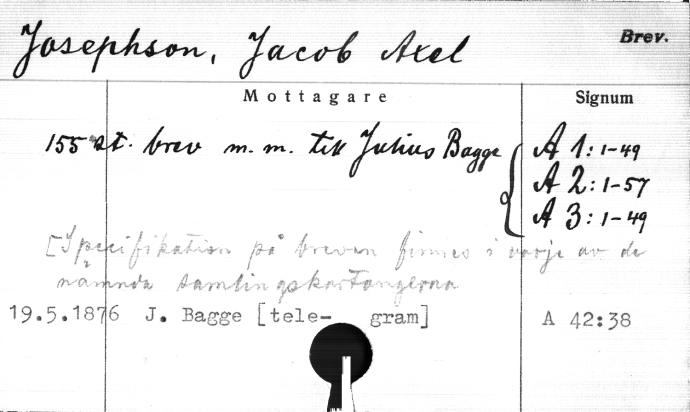 Josephson, Jacob Axel Brev.
Mottagare Signum
155 st. brev m. m. till Julius Bagge { A 1: 1-49
A 2: 1-57
A 3: 1-49
[Specifikation på breven finnes i varje av de
nämnda samlingskartongerna
19.5.1876 J. Bagge [tele- gram] A 42:38